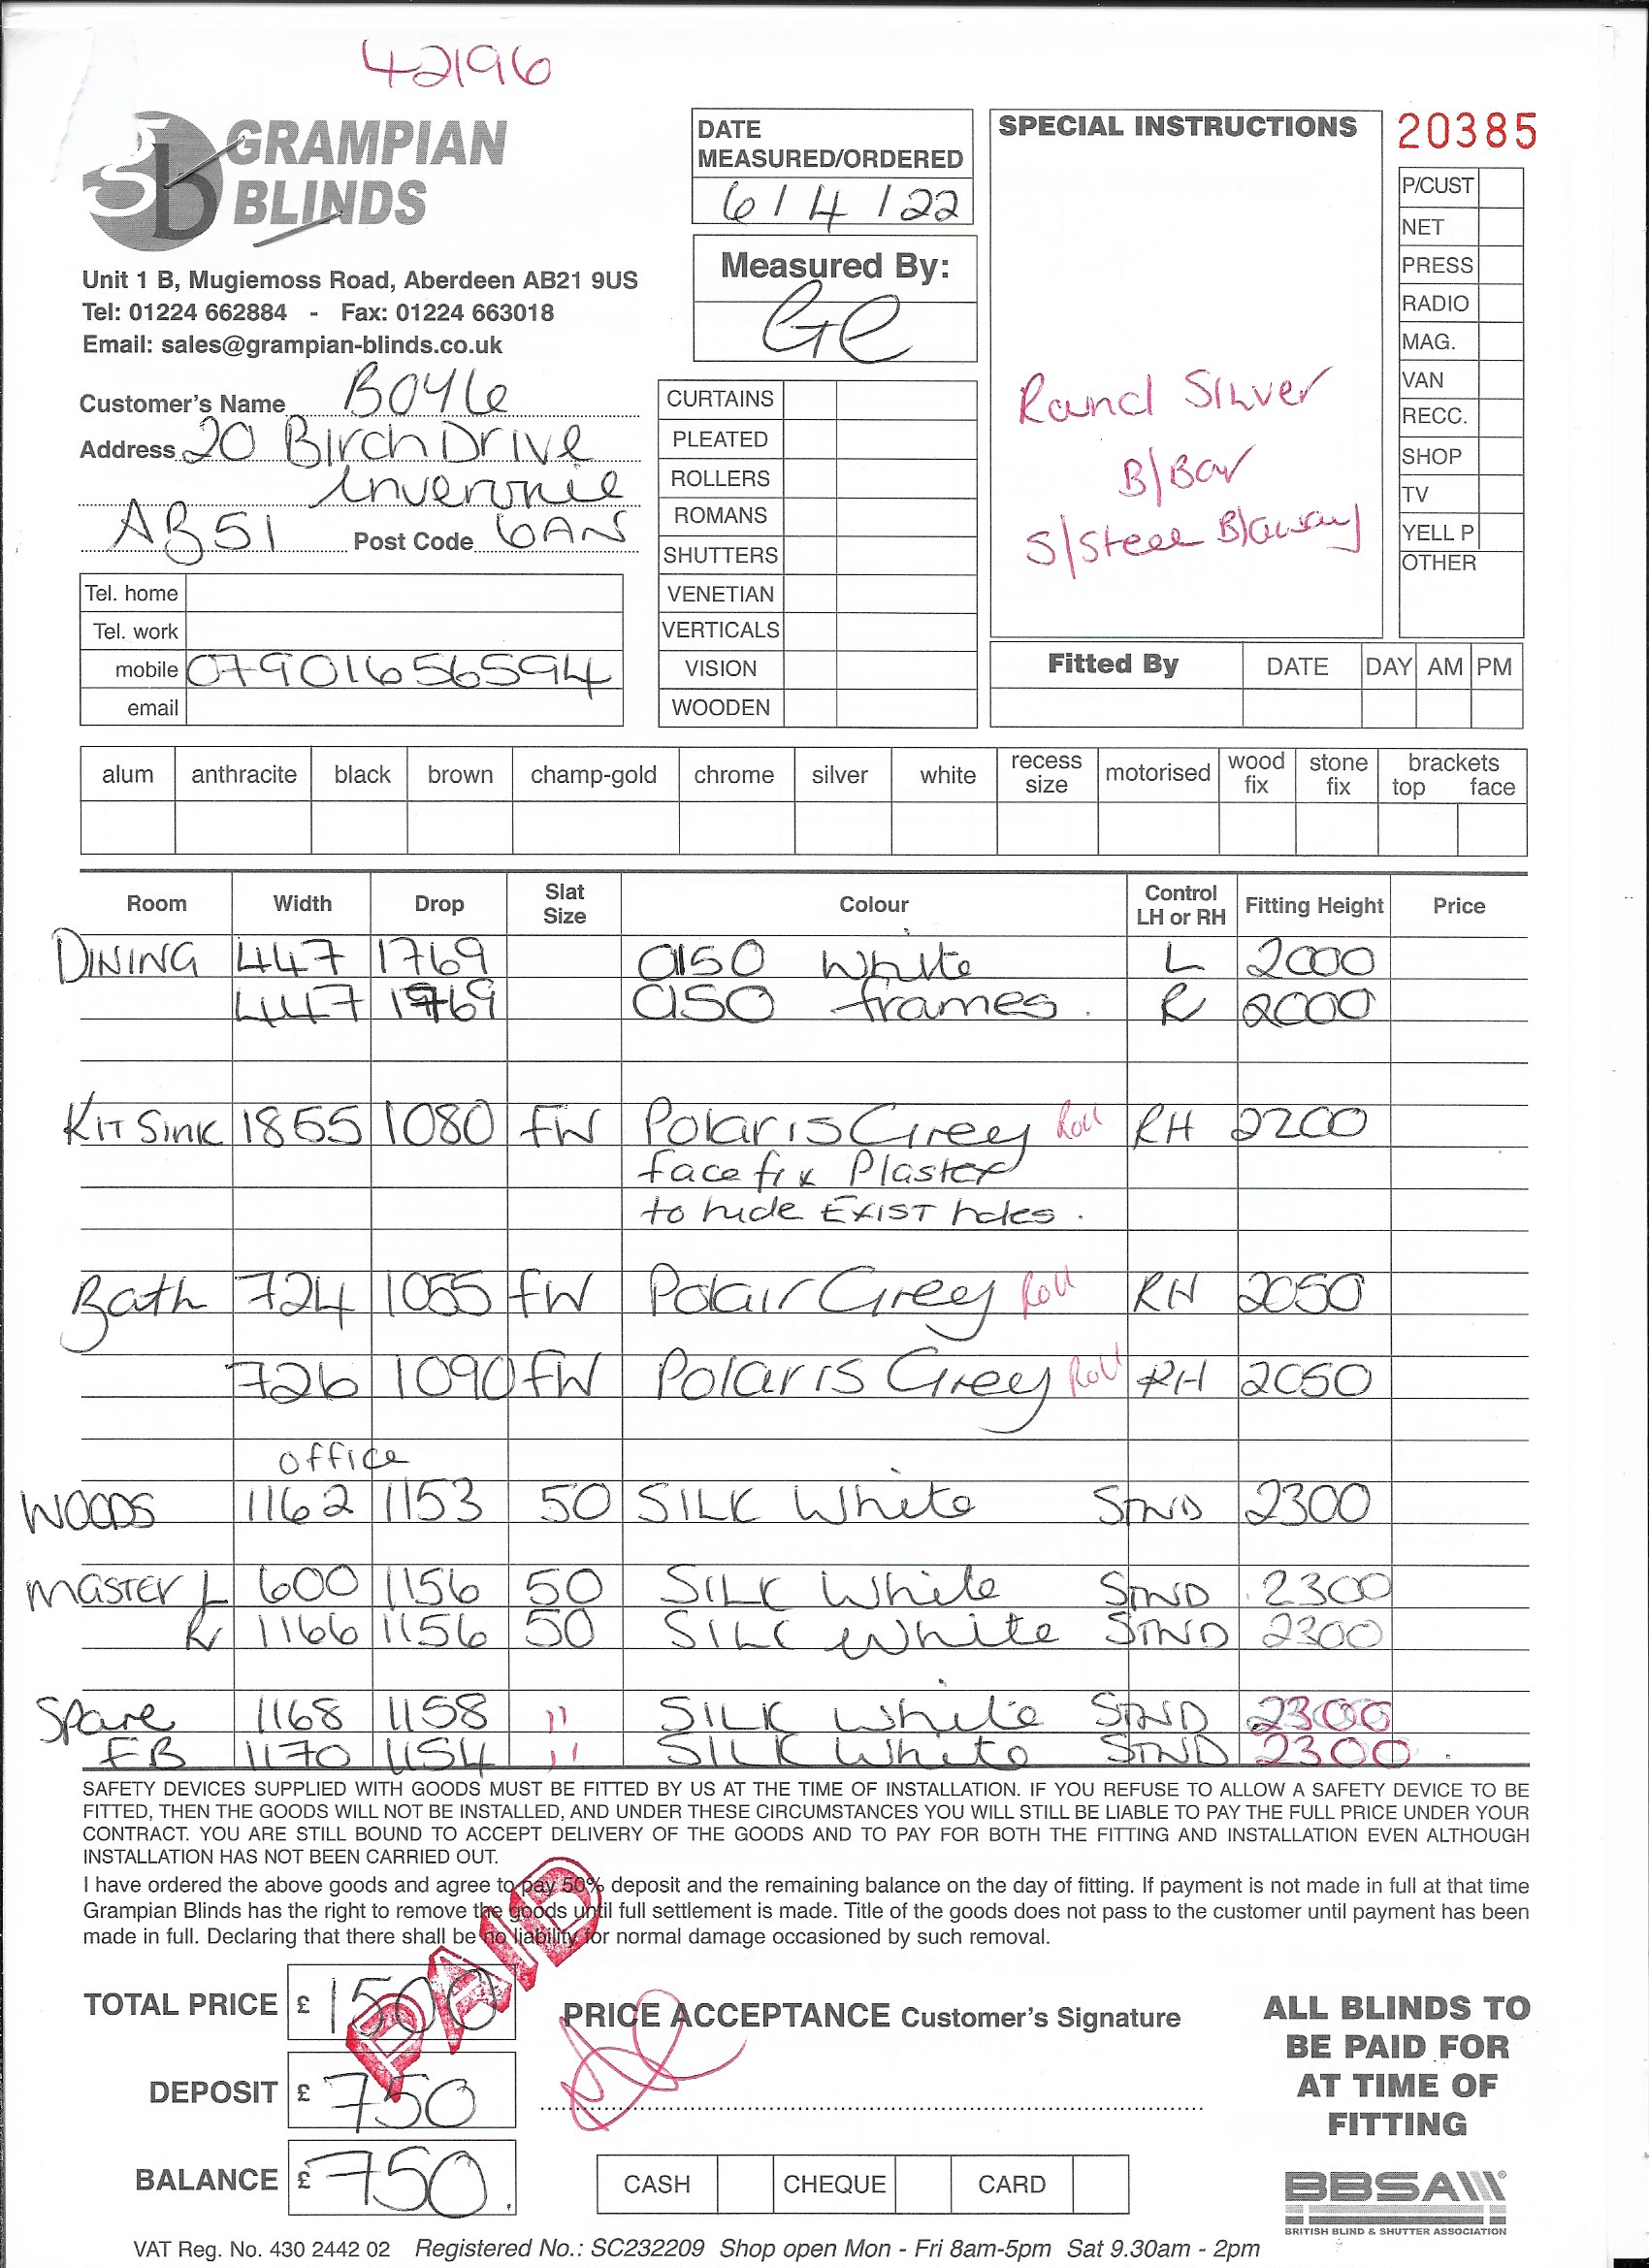 42196
GRAMPIAN
BLINDS
Unit 1 B, Mugiemoss Road, Aberdeen AB21 9US
Tel: 01224 662884 - Fax: 01224 663018
Email: sales@grampian-blinds.co.uk
DATE
MEASURED/ORDERED
6/4/22
Measured By:
GC
SPECIAL INSTRUCTIONS
Round Silver
B/Bar
S/Steel B/away
20385
P/CUST
NET
PRESS
RADIO
MAG.
VAN
RECC.
SHOP
TV
YELL P
OTHER
Customer's Name Boyle
Address 20 Birch Drive
Inverurie
AB51 Post Code 6AN
Tel. home
Tel. work
mobile 07901656594
email
CURTAINS
PLEATED
ROLLERS
ROMANS
SHUTTERS
VENETIAN
VERTICALS
VISION
WOODEN
Fitted By DATE DAY AM PM
alum anthracite black brown champ-gold chrome silver white recess size motorised wood fix stone fix brackets top face
Room Width Drop Slat Size Colour Control LH or RH Fitting Height Price
DINING 447 1769 0150 White L 2000
447 1769 0150 frames. R 2000
KIT SINK 1855 1080 FW Polaris Grey Roll RH 2200
face fix Plaster
to hide EXIST holes.
Bath 724 1055 FW Polair Grey Roll RH 2050
726 1090 FW Polaris Grey Roll RH 2050
office
WOODS 1162 1153 50 SILK White STND 2300
MASTER L 600 1156 50 SILK White STND 2300
R 1166 1156 50 SILK White STND 2300
Spare 1168 1158 " SILK White STND 2300
FB 1170 1154 " SILK White STND 2300.
SAFETY DEVICES SUPPLIED WITH GOODS MUST BE FITTED BY US AT THE TIME OF INSTALLATION. IF YOU REFUSE TO ALLOW A SAFETY DEVICE TO BE
FITTED, THEN THE GOODS WILL NOT BE INSTALLED, AND UNDER THESE CIRCUMSTANCES YOU WILL STILL BE LIABLE TO PAY THE FULL PRICE UNDER YOUR
CONTRACT. YOU ARE STILL BOUND TO ACCEPT DELIVERY OF THE GOODS AND TO PAY FOR BOTH THE FITTING AND INSTALLATION EVEN ALTHOUGH
INSTALLATION HAS NOT BEEN CARRIED OUT.
I have ordered the above goods and agree to pay 50% deposit and the remaining balance on the day of fitting. If payment is not made in full at that time
Grampian Blinds has the right to remove the goods until full settlement is made. Title of the goods does not pass to the customer until payment has been
made in full. Declaring that there shall be no liability for normal damage occasioned by such removal.
PAID
TOTAL PRICE £ 1500
DEPOSIT £ 750
BALANCE £ 750.
PRICE ACCEPTANCE Customer's Signature
CASH CHEQUE CARD
ALL BLINDS TO
BE PAID FOR
AT TIME OF
FITTING
BBSA
BRITISH BLIND & SHUTTER ASSOCIATION
VAT Reg. No. 430 2442 02 Registered No.: SC232209 Shop open Mon - Fri 8am-5pm Sat 9.30am - 2pm